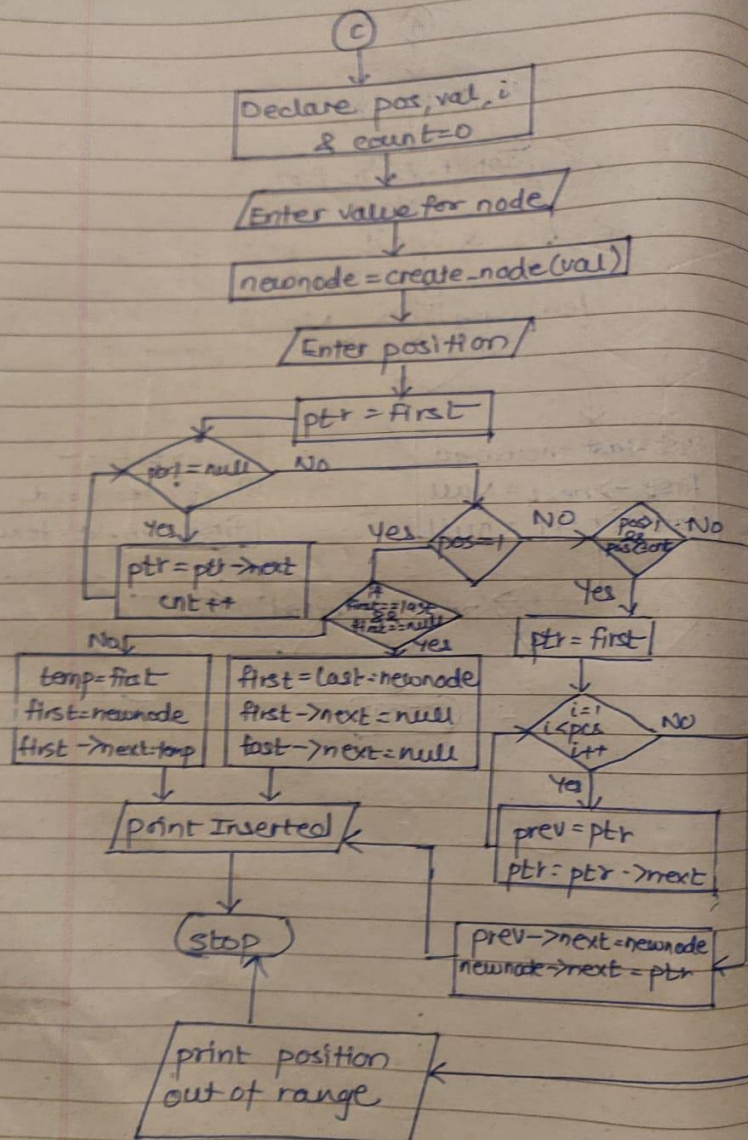 C
Declare pos, val, i
& count=0
Enter value for node
newnode = create_node(val)
Enter position
ptr = first
ptr != null
No
Yes
ptr = ptr->next
cnt++
pos=1
Yes
NO
pos>1
&&
No
Yes
If
first==last
&&
first==null
No
Yes
temp=first
first=newnode
first->next=temp
first=last=newnode
first->next=null
last->next=null
ptr = first
i=1
i<pos
i++
NO
Yes
prev = ptr
ptr = ptr->next
print Inserted
prev->next=newnode
newnode->next = ptr
stop
print position
out of range